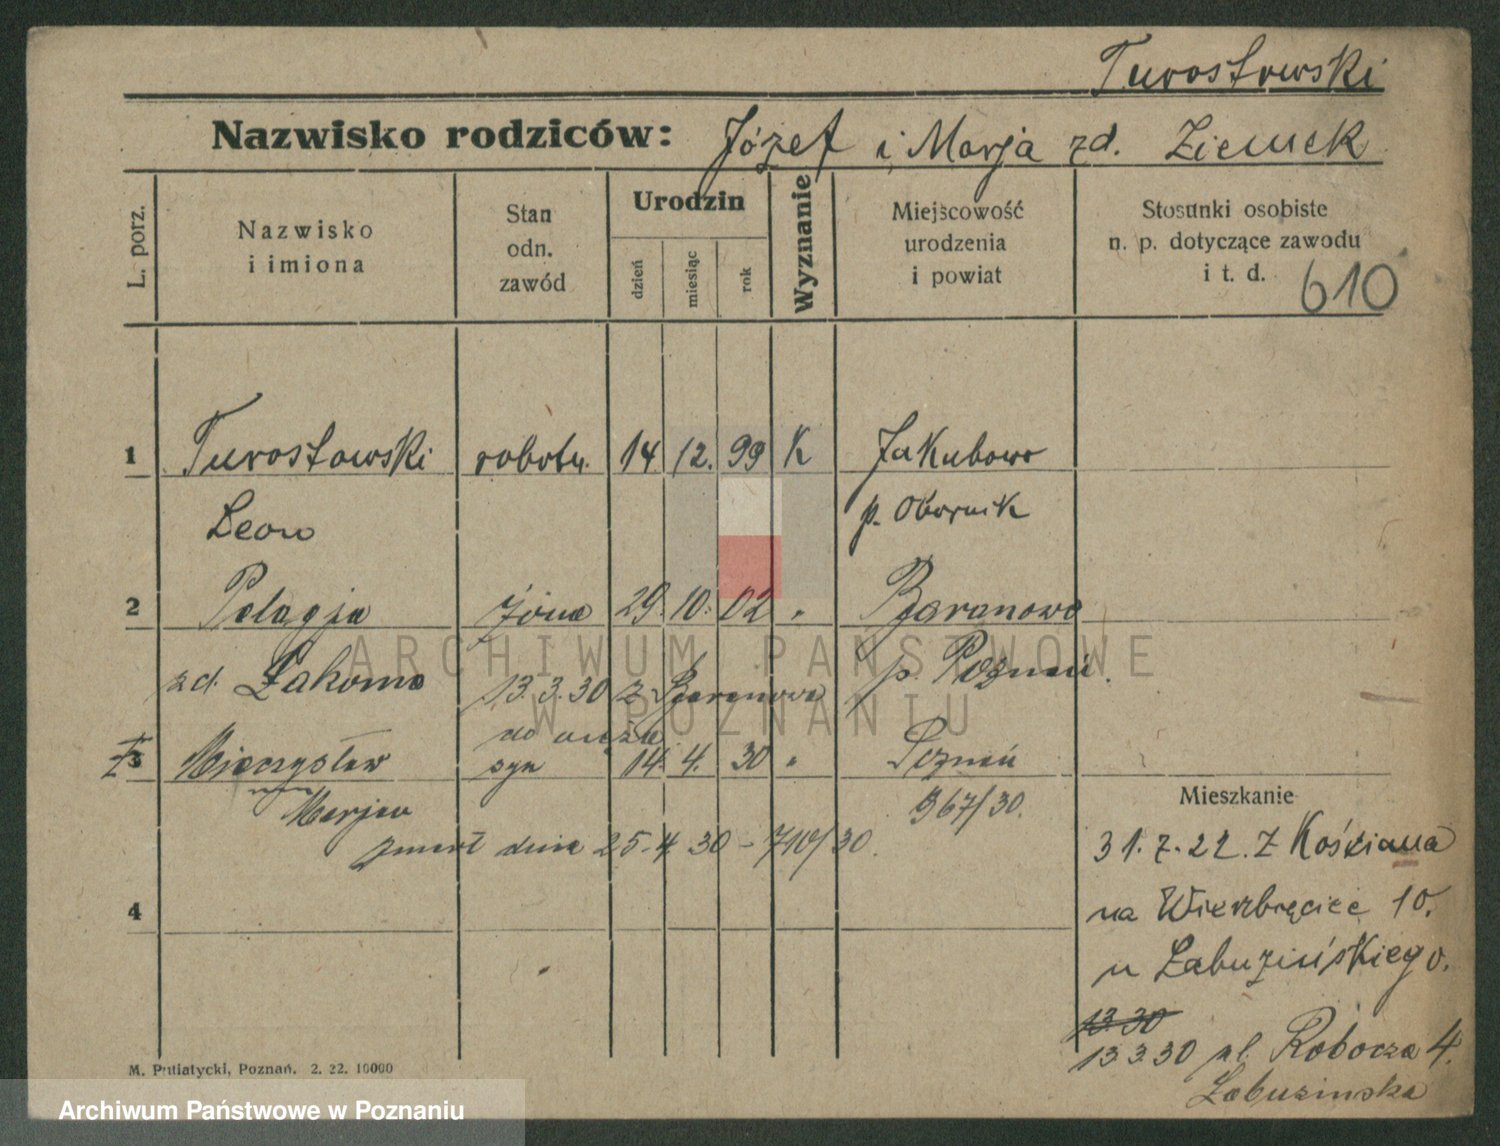 Turostowski
Nazwisko rodziców: Józef i Marja zd. Ziemek
L. porz.
Nazwisko
i imiona
Stan
odn.
zawód
Urodzin
dzień
miesiąc
rok
Wyznanie
Miejscowość
urodzenia
i powiat
Stosunki osobiste
n. p. dotyczące zawodu
i t. d.
610
1 Turostowski robotn. 14 12. 99 K Jakubowo
Leon p. Obornik
2 Pelagja żona 29. 10. 02 " Baranowo
zd. Łakoma 13.3.30 z Baranowa p. Poznań.
do męża
3 Mieczysław syn 14. 4. 30 " Poznań
Marjan 967/30.
zmarł dnia 25.4.30 - 710/30.
4
Mieszkanie
31.7.22. z Kościana
na Wierzbięcice 10.
u Łabuzińskiego.
13.30
13.3.30 ul. Robocza 4.
Łabuzinska
M. Putiatycki, Poznań. 2. 22. 10000
ARCHIWUM PAŃSTWOWE
W POZNANIU
Archiwum Państwowe w Poznaniu